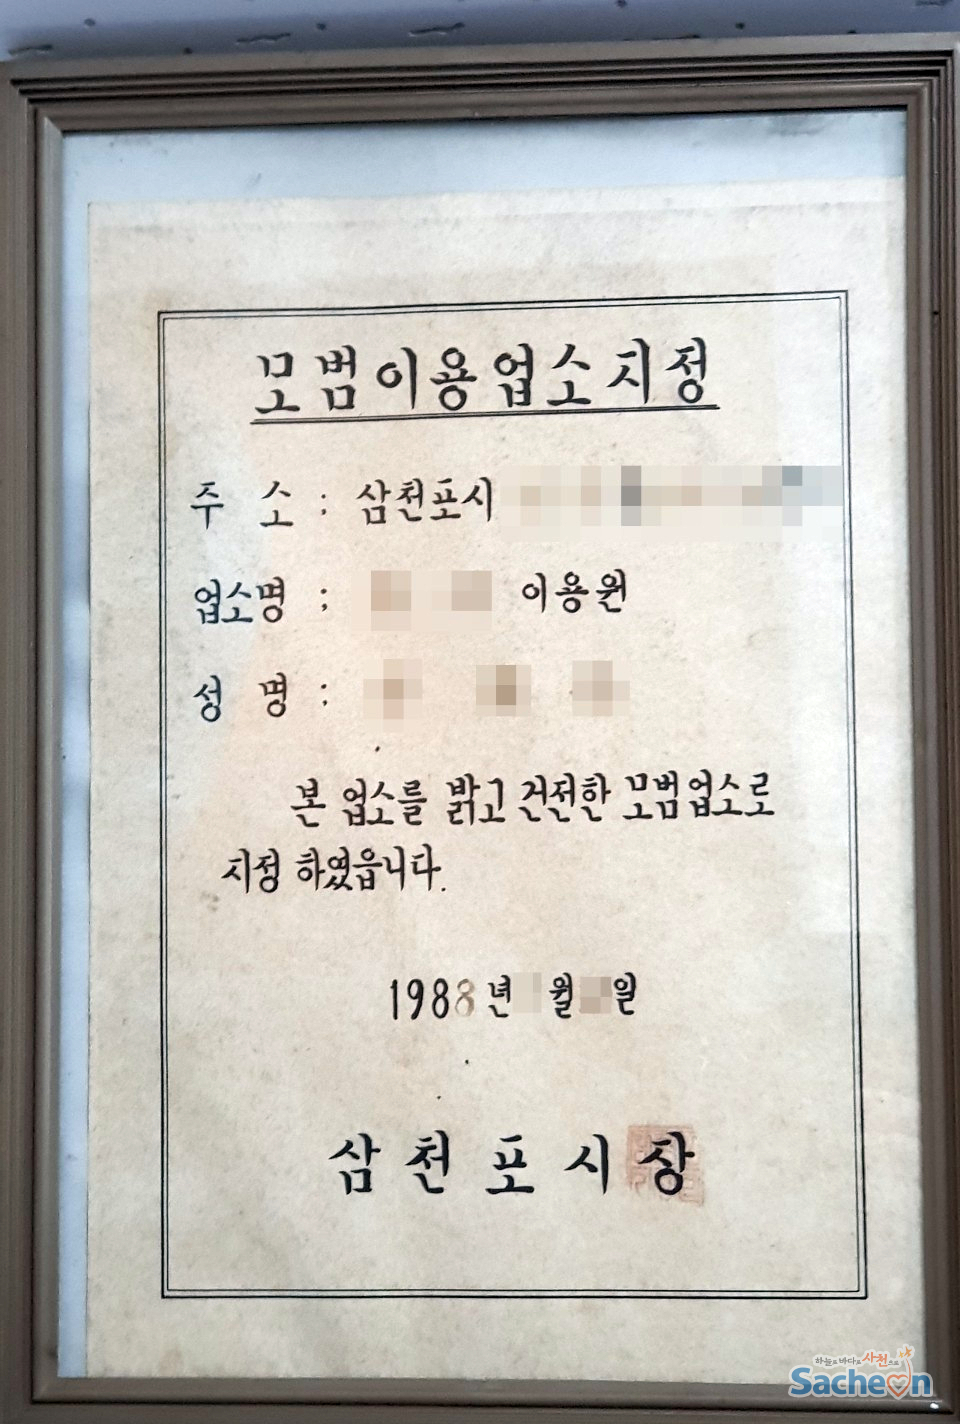 모범이용업소지정
주 소 : 삼천포시
업소명 : 이용원
성 명 :
본 업소를 밝고 건전한 모범업소로
지정 하였읍니다.
1988년 월 일
삼천포시장
하늘로 바다로 사천으로
Sacheon